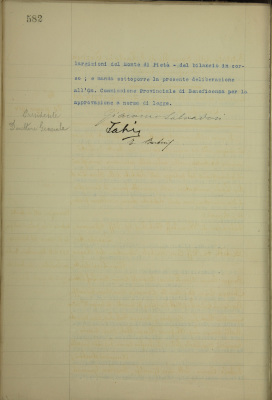 582
largizioni sul Monte di Pietà - del bilancio in cor-
so ; e manda sottoporre la presente deliberazione
all'On. Commissione Provinciale di Beneficenza per la
approvazione a norma di legge.
Giacomo Salvadori
Fabi